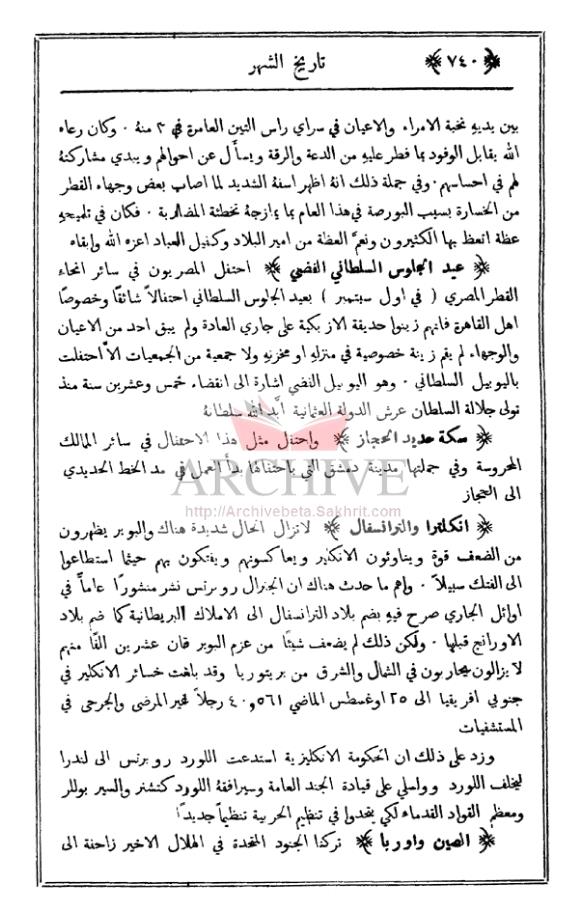 ﴿ ٧٤٠ ﴾ تاريخ الشهر
بين يديهِ نخبة الامراء والاعيان في سراي راس التين العامرة في ٣ منهُ ٠ وكان رعاه
الله يقابل الوفود بما فطر عليهِ من الدعة والرقة ويسأل عن احوالهم ويبدي مشاركتهُ
لهم في احساسهم ٠ وفي جملة ذلك انهُ اظهر اسفهُ الشديد لما اصاب بعض وجهاء القطر
من الخسارة بسبب البورصة في هذا العام بما يمازجهُ تخطئة المضاربة ٠ فكان في تلميحهِ
عظة اتعظ بها الكثيرون ونعمَّ العظة من امير البلاد وكفيل العباد اعزه الله وابقاه
﴿ عيد الجلوس السلطاني الفضي ﴾ احتفل المصريون في سائر انحاء
القطر المصري ( في اول سبتمبر ) بعيد الجلوس السلطاني احتفالاً شائقاً وخصوصاً
اهل القاهرة فانهم زينوا حديقة الازبكية على جاري العادة ولم يبق احد من الاعيان
والوجهاء لم يقم زينة خصوصية في منزلهِ او مخزنهِ ولا جمعية من الجمعيات الاَّ احتفلت
باليوبيل السلطاني ٠ وهو اليوبيل الفضي اشارة الى انقضاء خمس وعشرين سنة منذ
تولى جلالة السلطان عرش الدولة العثمانية أيَّد الله سلطانهُ
﴿ سكة حديد الحجاز ﴾ واحتفل مثل هذا الاحتفال في سائر الممالك
المحروسة وفي جملتها مدينة دمشق التي باحتفالها بدأ العمل في مد الخط الحديدي
الى الحجاز
ARCHIVE
http://Archivebeta.Sakhrit.com
﴿ انكلترا والترانسفال ﴾ لاتزال الحال شديدة هناك والبوير يظهرون
من الضعف قوة ويناوئون الانكليز ويعاكسونهم ويفتكون بهم حيثما استطاعوا
الى الفتك سبيلاً ٠ واهم ما حدث هناك ان الجنرال روبرتس نشر منشوراً عاماً في
اوائل الجاري صرح فيهِ بضم بلاد الترانسفال الى الاملاك البريطانية كما ضم بلاد
الاورانج قبلها ٠ ولكن ذلك لم يضعف شيئاً من عزم البوير فان عشرين الفاً منهم
لا يزالون يحاربون في الشمال والشرق من بريتوريا وقد بلغت خسائر الانكليز في
جنوبي افريقيا الى ٢٥ اوغسطس الماضي ٤٠,٥٦١ رجلاً غير المرضى والجرحى في
المستشفيات
وزد على ذلك ان الحكومة الانكليزية استدعت اللورد روبرتس الى لندرا
ليخلف اللورد وولسلي على قيادة الجند العامة وسيرافقهُ اللورد كتشنر والسير بوللر
ومعظم القواد القدماء لكي يتحدوا في تنظيم الحربية تنظيماً جديداً
﴿ الصين واوربا ﴾ تركنا الجنود المتحدة في الهلال الاخير زاحفة الى